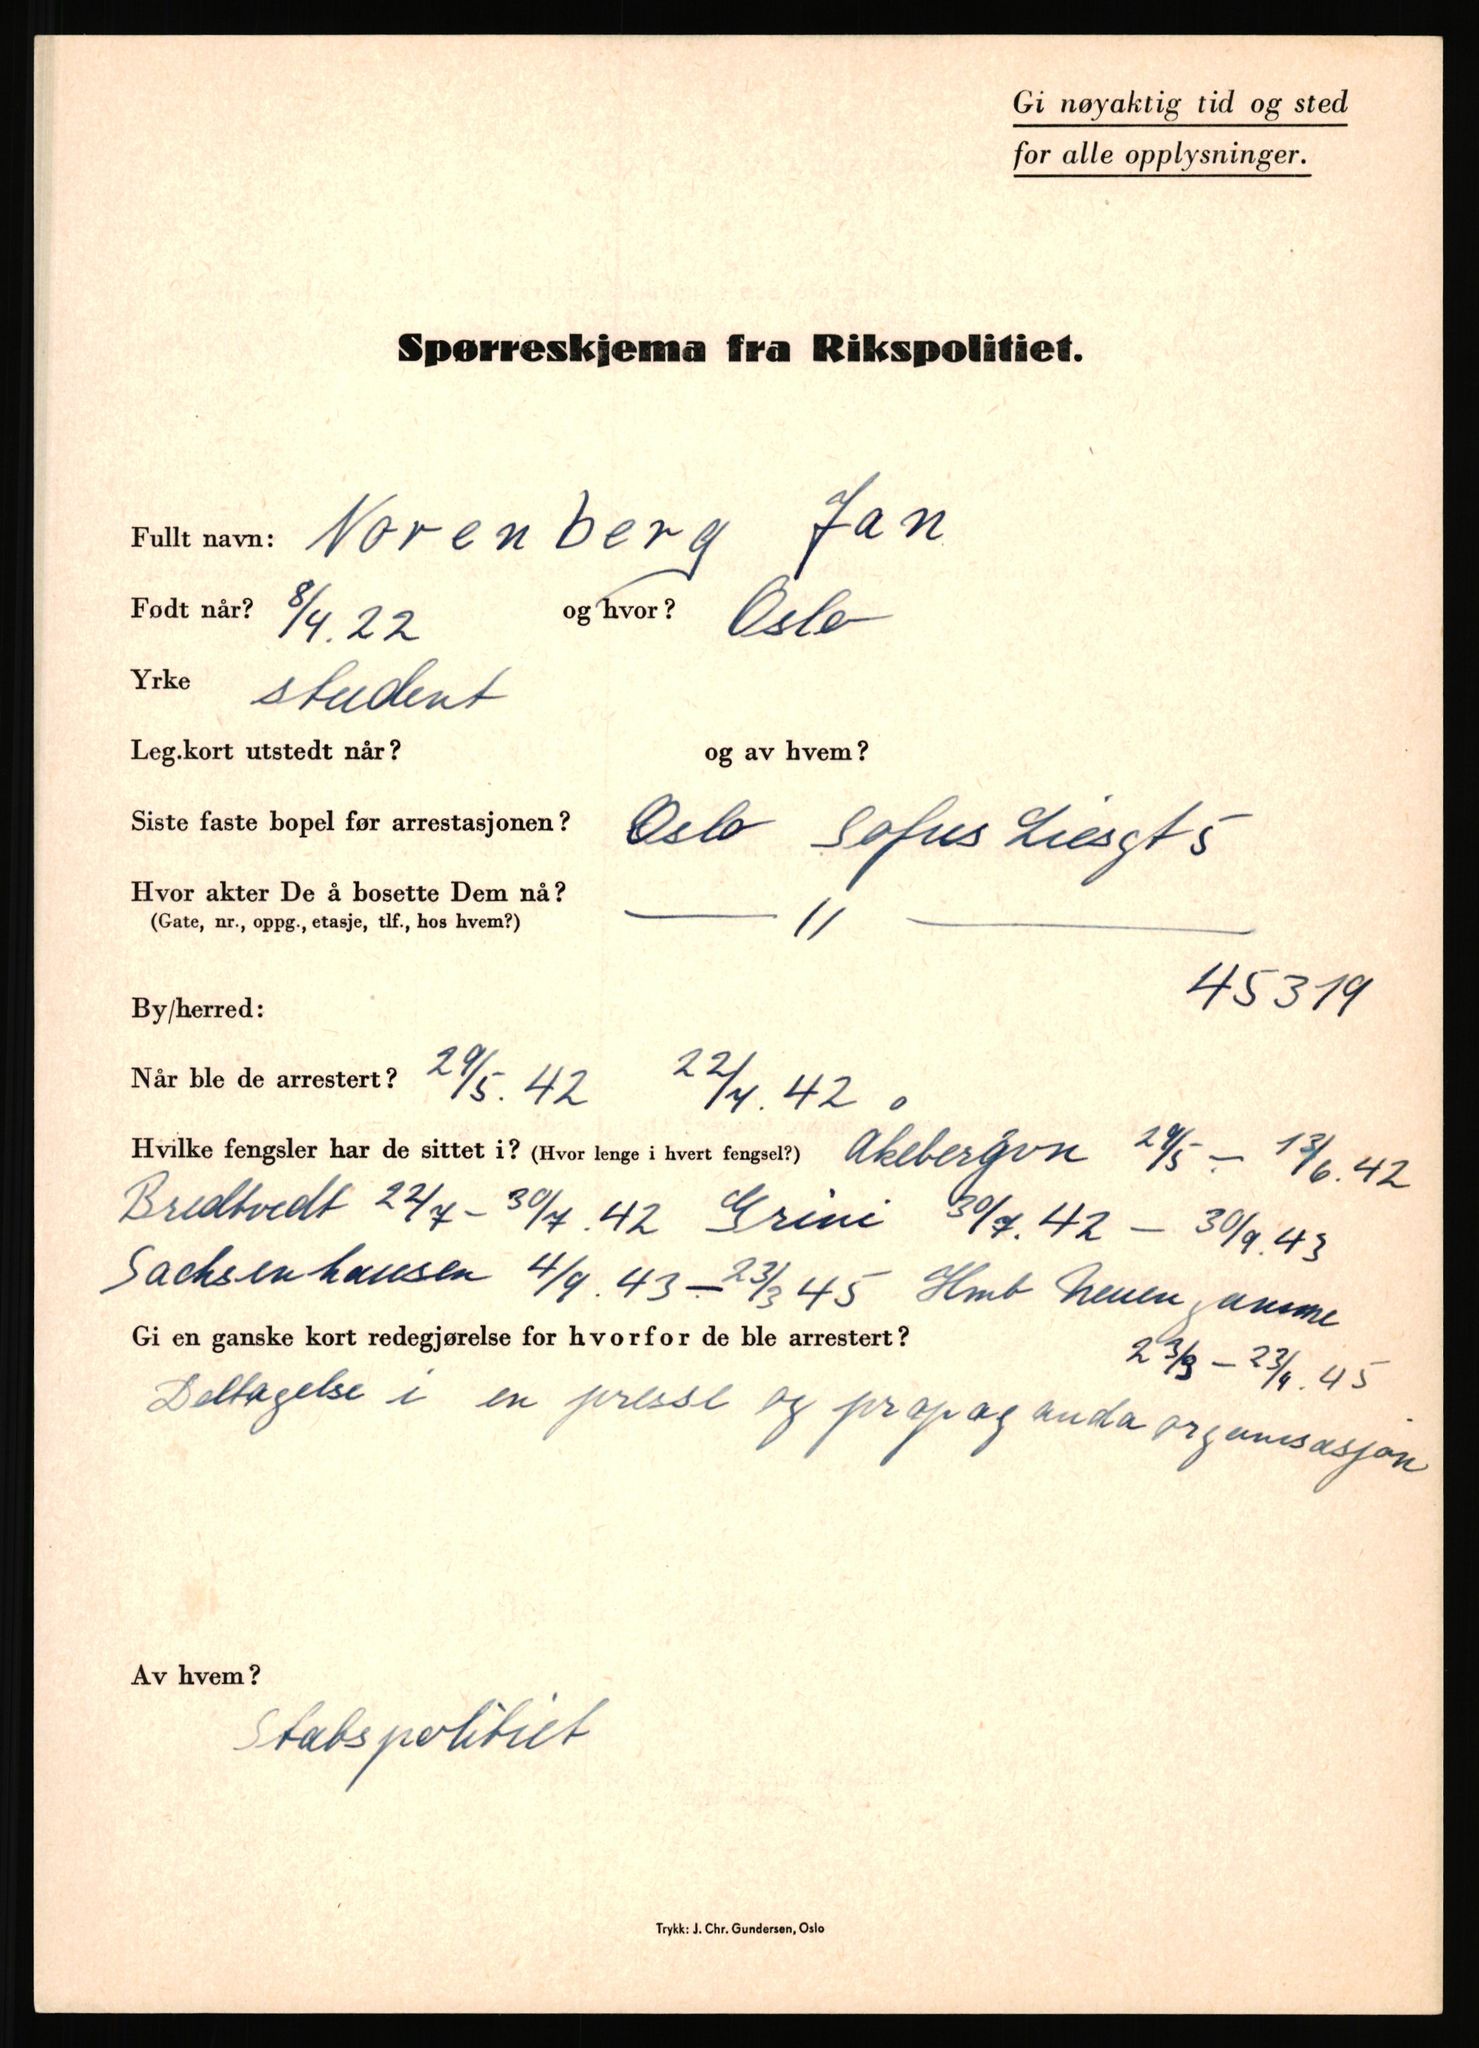 Gi nøyaktig tid og sted
for alle opplysninger.
Spørreskjema fra Rikspolitiet.
Fullt navn: Norenberg Jan
Født når? 8/4.22 og hvor? Oslo
Yrke student
Leg.kort utstedt når? og av hvem?
Siste faste bopel før arrestasjonen? Oslo Sofus Liesgt 5
Hvor akter De å bosette Dem nå? — " —
(Gate, nr., oppg., etasje, tlf., hos hvem?)
45319
By/herred:
Når ble de arrestert? 29/5.42 22/7.42.
Hvilke fengsler har de sittet i? (Hvor lenge i hvert fengsel?) Akebergvn 29/5 – 13/6.42
Bredtvedt 22/7 – 30/7.42 Grini 30/7.42 – 30/9.43
Sachsenhausen 4/9.43 – 23/3 45 Hmb Neuengamme
Gi en ganske kort redegjørelse for hvorfor de ble arrestert? 23/3 – 23/4.45
Deltagelse i en presse og propaganda organisasjon
Av hvem?
Statspolitiet
Trykk: J. Chr. Gundersen, Oslo